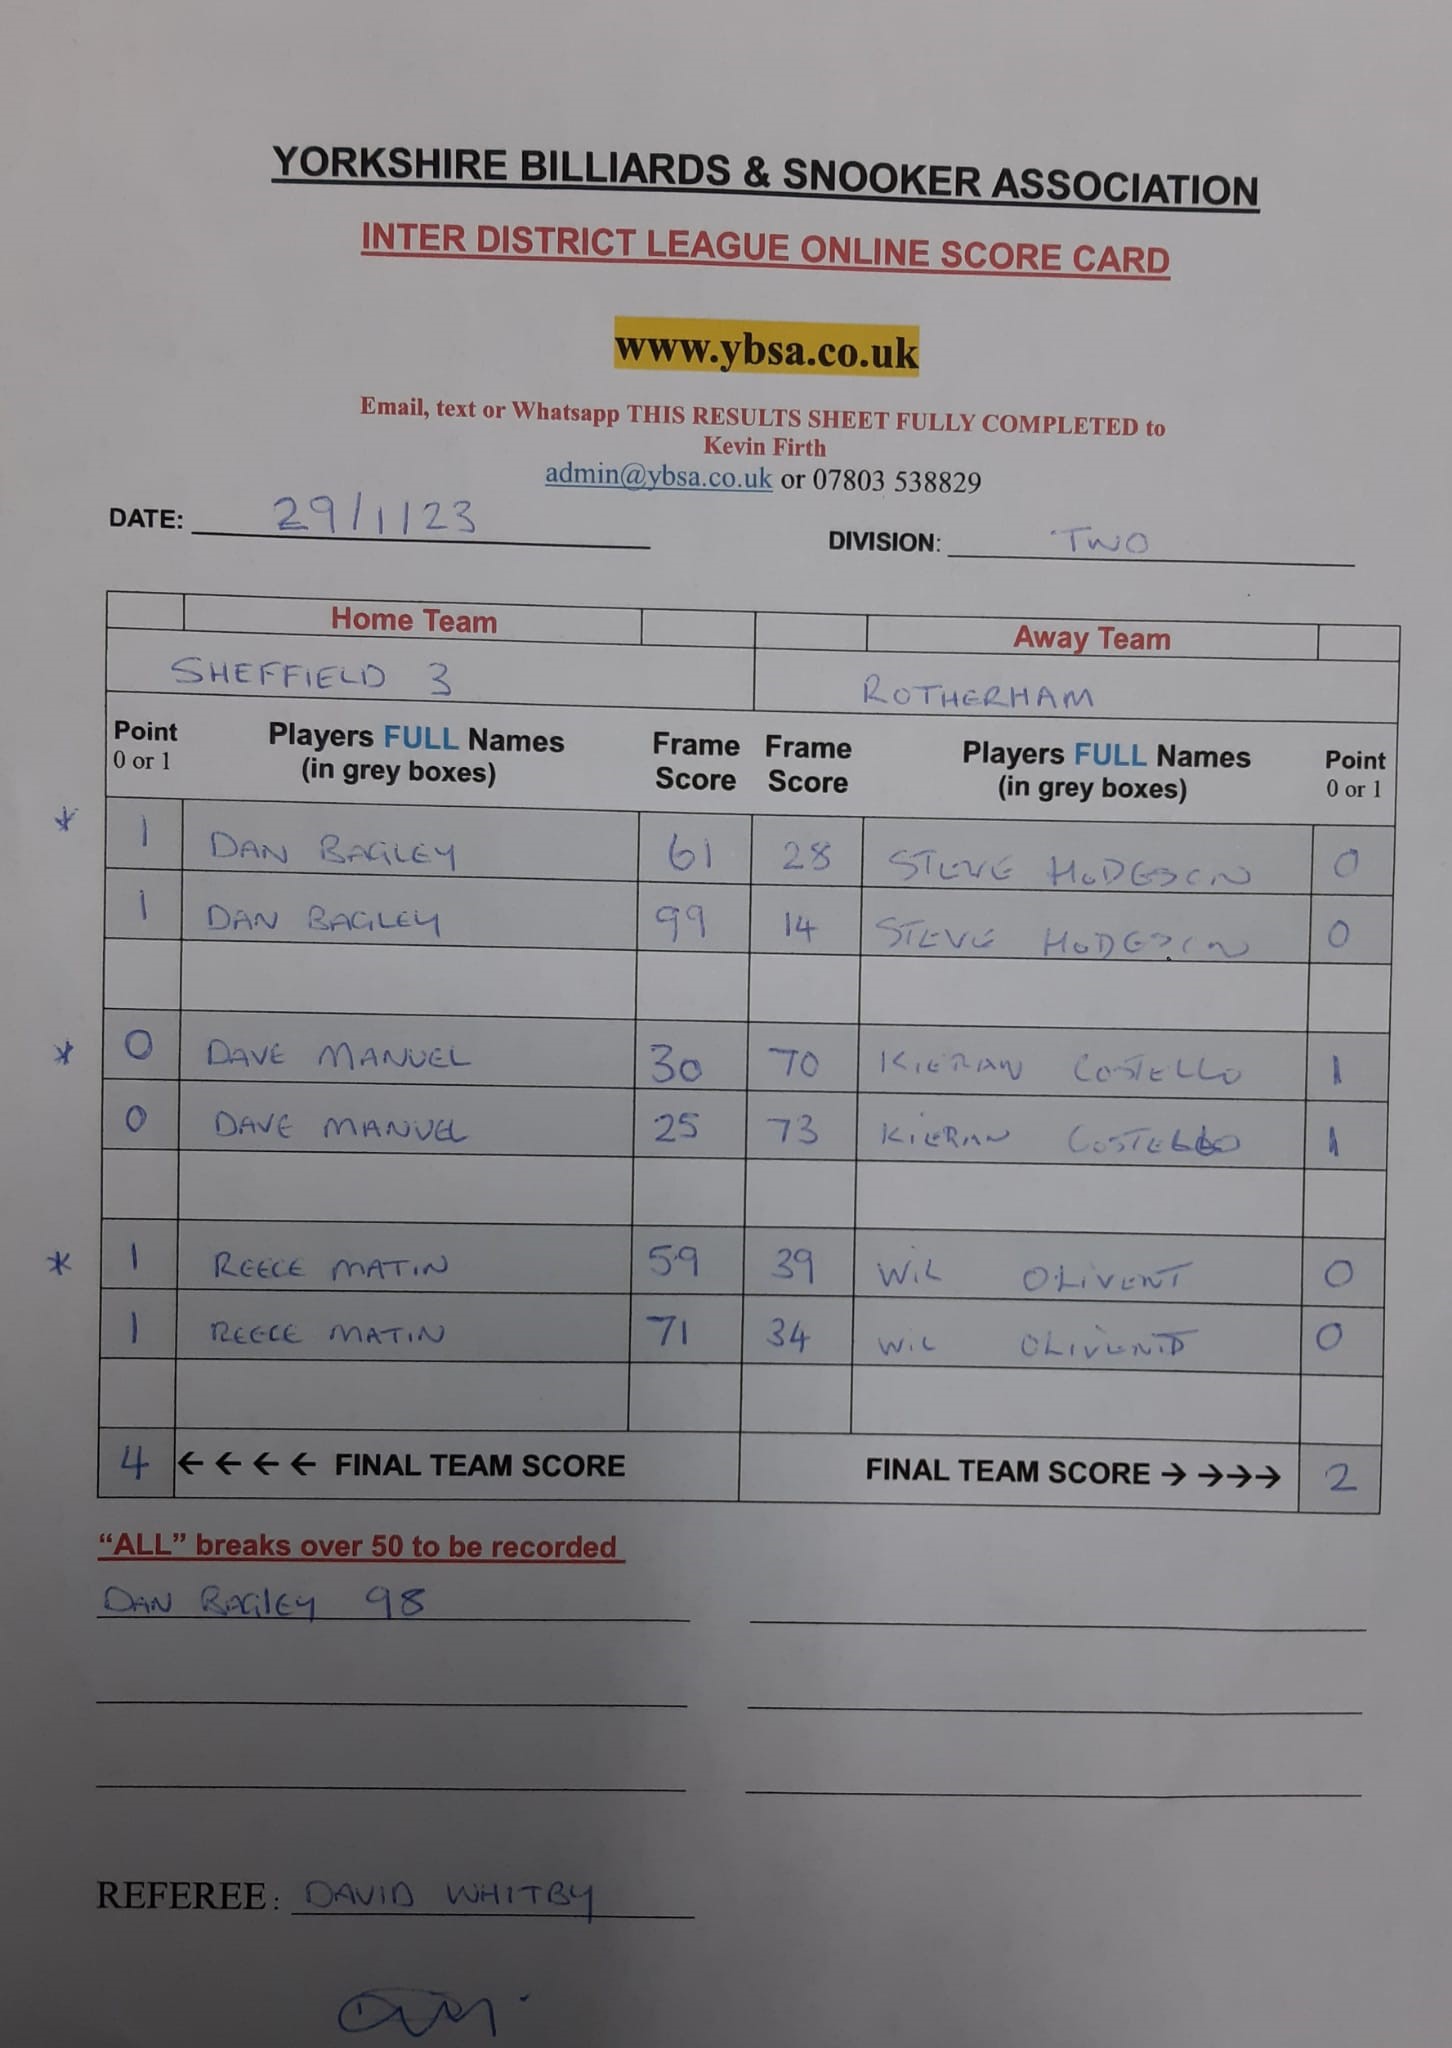 YORKSHIRE BILLIARDS & SNOOKER ASSOCIATION
INTER DISTRICT LEAGUE ONLINE SCORE CARD
www.ybsa.co.uk
Email, text or Whatsapp THIS RESULTS SHEET FULLY COMPLETED to
Kevin Firth
admin@ybsa.co.uk or 07803 538829
DATE: 29/1/23 DIVISION: TWO
Home Team Away Team
SHEFFIELD 3 ROTHERHAM
Point 0 or 1 Players FULL Names (in grey boxes) Frame Score Frame Score Players FULL Names (in grey boxes) Point 0 or 1
* 1 DAN BAGLEY 61 28 STEVE HODGSON 0
1 DAN BAGLEY 99 14 STEVE HODGSON 0
* 0 DAVE MANUEL 30 70 KIERAN COSTELLO 1
0 DAVE MANUEL 25 73 KIERAN COSTELLO 1
* 1 REECE MATIN 59 39 WIL OLIVENT 0
1 REECE MATIN 71 34 WIL OLIVENT 0
4 ← ← ← ← FINAL TEAM SCORE FINAL TEAM SCORE → →→→ 2
“ALL” breaks over 50 to be recorded
DAN BAGLEY 98
REFEREE: DAVID WHITBY